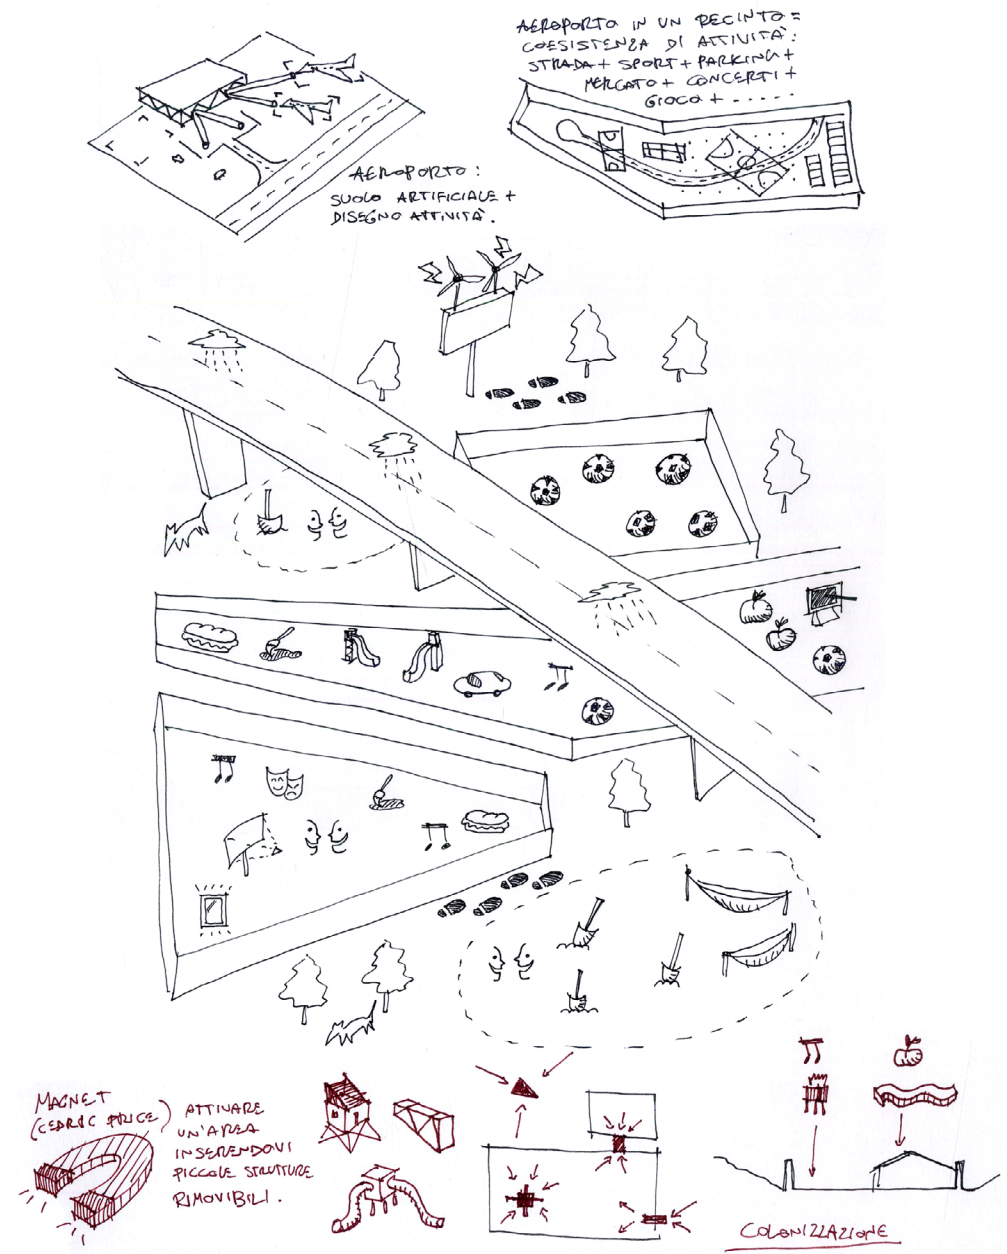 AEROPORTO IN UN RECINTO =
COESISTENZA DI ATTIVITÀ:
STRADA + SPORT + PARKING +
MERCATO + CONCERTI +
GIOCO + .....
AEROPORTO:
SUOLO ARTIFICIALE +
DISEGNO ATTIVITÀ.
MAGNET
(CEDRIC PRICE)
ATTIVARE
UN'AREA
INSERENDOVI
PICCOLE STRUTTURE
RIMOVIBILI.
COLONIZZAZIONE